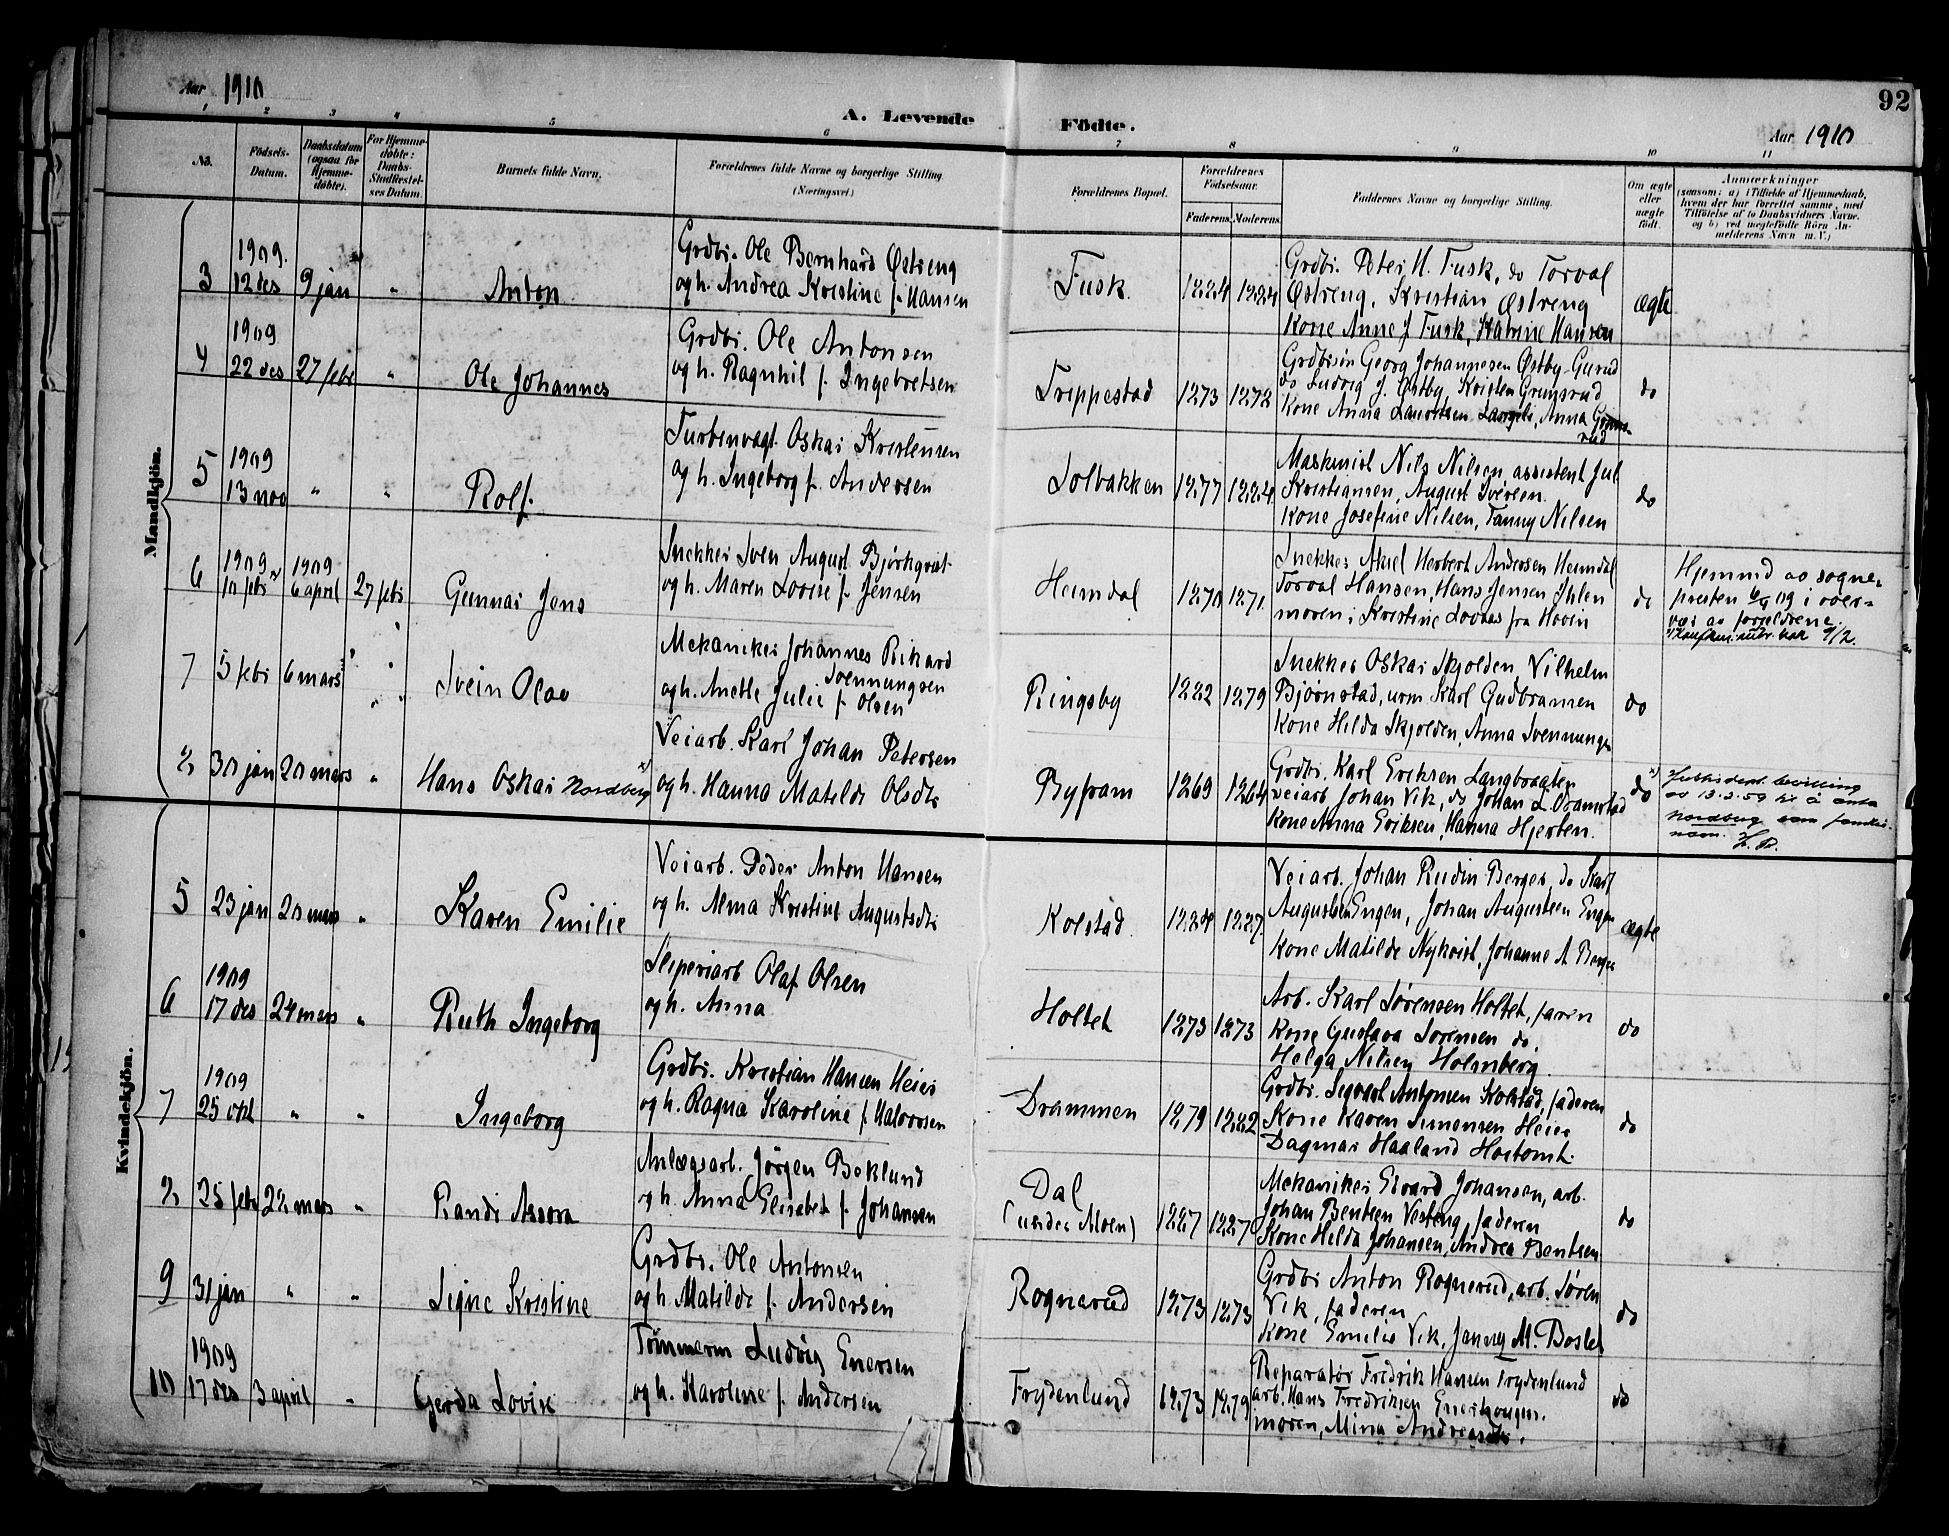 Aar 1910
A. Levende
Födte.
Aar 1910
92
1 2 3 4 5 6 7 8 9 10 11
No.
Födsels-
Datum.
Daabsdatum
(ogsaa for
Hjemme-
döbte).
For Hjemme-
döbte:
Daabs-
Stadfæstel-
ses Datum.
Barnets fulde Navn.
Forældrenes fulde Navne og borgerlige Stilling
(Næringsvei)
Forældrenes Bopæl.
Forældrenes
Födselsaar.
Faderens. Moderens.
Faddernes Navne og borgerlige Stilling.
Om ægte
eller
uægte
födt.
Anmærkninger
(saasom: a) i Tilfælde af Hjemmedaab,
hvem der har forrettet samme, med
Tilföielse af to Daabsvidners Navne.
og b) ved uægtefödte Börn An-
melderens Navn m. V.)
Mandkjön.
3
1909.
12 des
9 jan
"
Anton
Grdbr. Ole Bernhard Østreng
og h. Andrea Kristine f. Hansen
Fusk.
1884
1884
Grdbr. Peter H. Fusk, do Torval
Østreng, Kristian Østreng
Kone Anne J Fusk, Katrine Hansen
ægte
4
1909
22 des
27 febr
"
Ole Johannes
Grdbr. Ole Antonsen
og h. Ragnhil f. Ingebretsen
Treppestad
1873
1878
Grdbrsøn Georg Johannesen Østby
do Ludvig J. Østby, Kristen Grimsrud
Kone Anna Lauritsen, Anna Grims-
rud
do
5
1909
13 nov
"
"
Rolf
Turbinvagt. Oskar Kristensen
og h. Ingeborg f. Andersen
Solbakken
1877
1884
Maskinist Nils Nilsen, assistent Jul.
Kristiansen, August Iversen.
Kone Josefine Nilsen, Fanny Nilsen
do
6
1909
10 febr x)
1909
6 april
27 febr
Gunnar Jens
Snekker Sven August Bjørkqvist
og h. Maren Lovise f. Jensen
Heimdal
1870
1871
Snekker Aksel Herbert Andersen Heimdal
Torval Hansen, Hans Jensen Ihlen
moren, Kristine fra Hovin
do
Hjemmd av sogne-
presten 6/4 09 i over-
vær av forældrene.
9/2.
7
5 febr
6 mars
"
Svein Olav
Mekaniker Johannes Rikard
Svennungsen
og h. Anette Julie f. Olsen
Ringsby
1882
1879
Snekker Oskar Skjolden, Vilhelm
Bjørnstad, urm Karl Gudbransen
Kone Hilda Skjolden, Anna Svennungsen
do
8
30 jan
20 mars
"
Hans Oskar Nordberg x)
Veiarb. Karl Johan Petersen
og h. Hanna Matilde Olsdtr
Byfram
1869
1864
Grdbr. Karl Eriksen Langbraaten
veiarb Johan Vik, do Johan L.
Kone Anna Eriksen, Hanna Hjerten.
do
x) Justisdept. bevilling
av 13.2.59 til å anta
Nordberg som familie-
navn.
Kvindekjön.
5
23 jan
20 mars
"
Karen Emilie
Veiarb. Peder Anton Hansen
og h. Alma Kristine Augustsdtr
Kolstad
1884
1887
Veiarb. Johan Rudin Berger, do Karl
Augustsen Engen, Johan Augustsen Engen
Kone Matilde Nykvist, Johanne M Berger
ægte
6
1909
17 des
28 mars
"
Ruth Ingeborg
Sliperiarb Olaf Olsen
og h. Anna
Holtet
1873
1873
Arb. Karl Sørensen Holtet, faren
Kone Gustava Sørensen do,
Helga Nilsen Holmberg.
do
7
1909
25 okt
"
"
Ingeborg
Grdbr. Kristian Hansen Heier
og h. Ragna Karoline f. Halvorsen
Drammen
1879
1882
Grdbr. Sigvart Antonsen Kolstad, faderen
Kone Karen Simensen Heier
Dagmar Haaland
do
8
25 febr
28 mars
"
Randi Assora
Anlægsarb. Jörgen Boklund
og h. Anna Elisabet f. Johansen
Dal
(under Moen)
1887
1887
Mekaniker Edvard Johansen, arb.
Johan Bentsen Vesteng, faderen
Kone Hilda Johansen, Andrea Bentsen
do
9
31 jan
"
"
Signe Kristine
Grdbr. Ole Antonsen
og h. Matilde f. Andersen
Rognerud
1873
1873
Grdbr Anton Rognerud, arb. Søren
Vik, faderen,
Kone Emilie Vik, Janny M. Dosler
do
10
1909
17 des
3 april
"
Gerda Lovise
Tømmerm Ludvig Enersen
og h. Karoline f. Andersen
Frydenlund
1873
1879
Reparatør Fredrik Hansen Frydenlund
arb. Hans Fredriksen Enerhougen.
moren, Mina Andreasdtr.
do